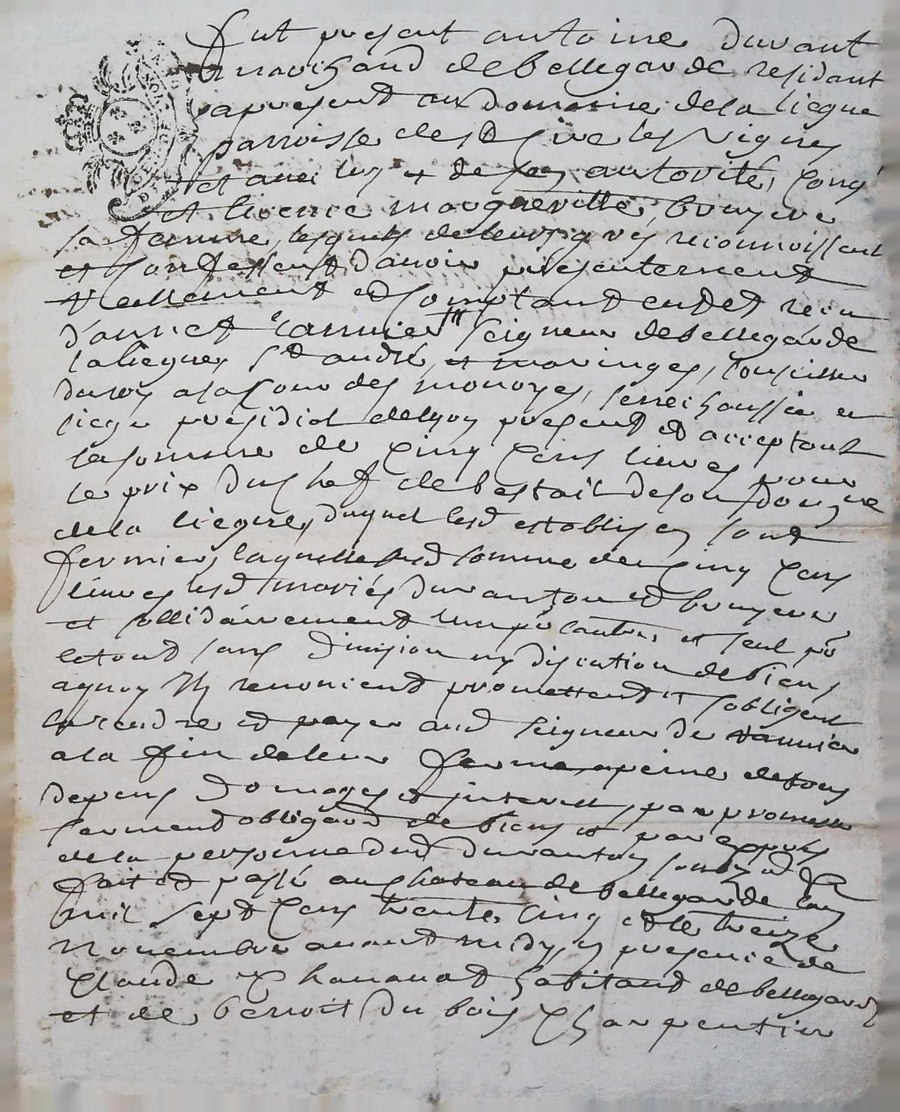 fut present antoine durant
marchand de bellegarde residant
a present au domaine de la liegue
parroisse de st Cire les Vignes
et avec luy et de son autorité, congé
et licence margueritte bruyere
sa femme, lesquels de leurs grés reconnoissent
et confessent d'avoir presentement
reellement et comptant eu et receu
d'annet rannier seigneur de bellegarde
la liegue, st andré, et maringes, conseiller
du roy a la cour des monoyes, senechaussée et
siege presidial de lyon present et acceptant
la somme de cinq cens livres pour
le prix du chef de bestail de son domaine
de la liegue, duquel lesd establis en sont
fermier, laquelle susd somme de cinq cens
livres lesd mariés durant et bruyere
et sollidairement l'un pr l'autre, et seul pr
le tout sans division ny discution de biens
a quoy ils renoncent promettent et s'obligent
la rendre et payer aud seigneur de rannier
a la fin de leur ferme a peine de tous
depens domages et interets, par promesse
serment obligaon de biens et par exprès
de la personne dud durant
fait et passé au chateau de bellegarde l'an
mil sept cens trente cinq et le treize
novembre avant midy en presence de
Claude habitant de bellegarde
et de benoit du bois charpentier